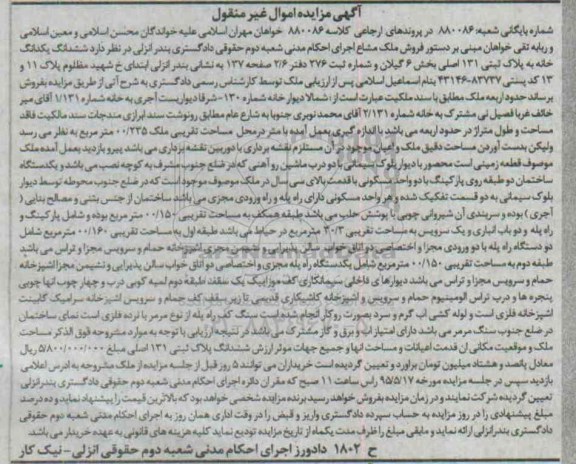 آگهی مزایده اموال غیر منقول
شماره بایگانی شعبه: ۸۸۰۰۸۶ در پروندهای ارجاعی کلاسه ۸۸۰۰۸۶ خواهان مهران اسلامی علیه خواندگان محسن اسلامی و معین اسلامی
و ربابه تقی خواهان مبنی بر دستور فروش ملک مشاع اجرای احکام مدنی شعبه دوم حقوقی دادگستری بندر انزلی در نظر دارد ششدانگ یکدانگ
خانه به پلاک ثبتی ۱۳۱ اصلی بخش ۶ گیلان و شماره ثبت ۳۷۶ دفتر ۲/۶ صفحه ۱۳۷ به نشانی بندر انزلی ابتدای خ شهید مظلوم پلاک ۱۱ و
۱۳ کد پستی ۸۳۷۳۷-۴۳۱۴۶ بنام اسماعیل اسلامی پس از ارزیابی ملک توسط کارشناس رسمی دادگستری به شرح آتی از طریق مزایده بفروش
برساند حدود اربعه ملک مطابق با سند ملکیت عبارت است از: شمالا دیوار خانه شماره ۱۳۰- شرقا دیواریست آجری به خانه شماره ۱/۱۳۱ آقای میر
خالف غربا فصیل نی مشترک به خانه شماره ۲/۱۳۱ آقای محمد نویری جنوبا به شارع عام مطابق رونوشت سند ابرازی مندرجات سند مالکیت فاقد
مساحت و طول متراژ در حدود اربعه می باشد با اندازه گیری بعمل آمده با متر در محل مساحت تقریبی ملک ۰۰/۲۳۵ متر مربع به نظر می رسد
ولیکن بدست آوردن مساحت دقیق ملک و اعیان موجود در آن مستلزم نقشه برداری با دوربین نقشه برداری می باشد پیرو بازدید بعمل آمده ملک
موصوف قطعه زمینی است محصور با دیوار بلوک سیمانی با دو درب ماشین رو آهنی که در ضلع جنوب مشرف به کوچه نصب می باشد و یکدستگاه
ساختمان دو طبقه روی پارکینگ با دو واحد مسکونی با قدمت بالای سی سال در ملک موصوف موجود است که در ضلع جنوب محوطه توسط دیوار
بلوک سیمانی به دو قسمت تفکیک شده و هر واحد مسکونی دارای راه پله و راه ورودی مجزی می باشد ساختمان از جنس بتنی و مصالح بنایی (
آجری ) بوده و سربندی آن شیروانی چوبی با پوشش حلب می باشد طبقه همکف به مساحت تقریبی ۰۰/۱۵۰ متر مربع بوده و شامل پارکینگ و
راه پله و دو باب انباری و یک سرویس به مساحت تقریبی ۳۰/۳ مترمربع در حیاط می باشد طبقه اول به مساحت تقریبی ۰۰/۱۶۰ متر مربع شامل
دو دستگاه راه پله با دو ورودی مجزا و اختصاصی دو اتاق خواب سالن پذیرایی و نشیمن مجزی آشپزخانه حمام و سرویس مجزا و تراس می باشد
طبقه دوم به مساحت تقریبی ۰۰/۱۵۰ متر مربع شامل یکدستگاه راه پله مجزی و اختصاصی دو اتاق خواب سالن پذیرایی و نشیمن مجزا آشپزخانه
حمام و سرویس مجزا و تراس می باشد دیوارهای داخلی سیمانکاری کف موزاییک پک سقف طبقه دوم لمبه کوبی درب و چهار چوب آنها چوبی
پنجره ها و درب تراس آلومینیوم حمام و سرویس و آشپزخانه کاشیکاری قدیمی تا زیر سقف کف حمام و سرویس آشپزخانه سرامیک کابینت
آشپزخانه فلزی است و لوله کشی آب گرم و سرد بصورت روکار انجام شده است سنگ کف راه پله از نوع مرمر با نرده فلزی است نمای ساختمان
در ضلع جنوب سنگ مرمر می باشد دارای امتیاز آب برق و گاز مشترک می باشد در نتیجه ارزیابی با توجه به موارد مشروحه فوق الذکر مساحت
ملک و موقعیت مکانی آن قدمت اعیانات و مساحت آنها و جمیع جهات موثر ارزش ششدانگ پلاک ثبتی ۱۳۱ اصلی مبلغ ۵/۸۰۰/۰۰۰/۰۰۰ ریال
معادل پانصد و هشتاد میلیون تومان برآورد و تعیین گردیده است خریداران می توانند ۵ روز قبل از جلسه مزایده از ملک مشروحه به آدرس اعلامی
بازدید سپس در جلسه مزایده مورخه ۹۵/۵/۱۷ راس ساعت ۱۱ صبح که مقر آن دائره اجرای احکام مدنی شعبه دوم حقوقی دادگستری بندرانزلی
تعیین گردیده شرکت نمایند و در زمان مزایده بفروش خواهد رسید برنده مزایده شخصی خواهد بود که بالاترین قیمت را پیشنهاد نماید و ده درصد
مبلغ پیشنهادی را در روز مزایده به حساب سپرده دادگستری واریز و قبض را در وقت اداری همان روز به اجرای احکام مدنی شعبه دوم حقوقی
دادگستری بندرانزلی ارائه نماید و مابقی مبلغ را ظرف مدت یکماه از تاریخ مزایده تودیع نماید کلیه هزینه های قانونی به عهده خریدار می باشد.
ح ۱۸۰۲ دادورز اجرای احکام مدنی شعبه دوم حقوقی انزلی- نیک کار